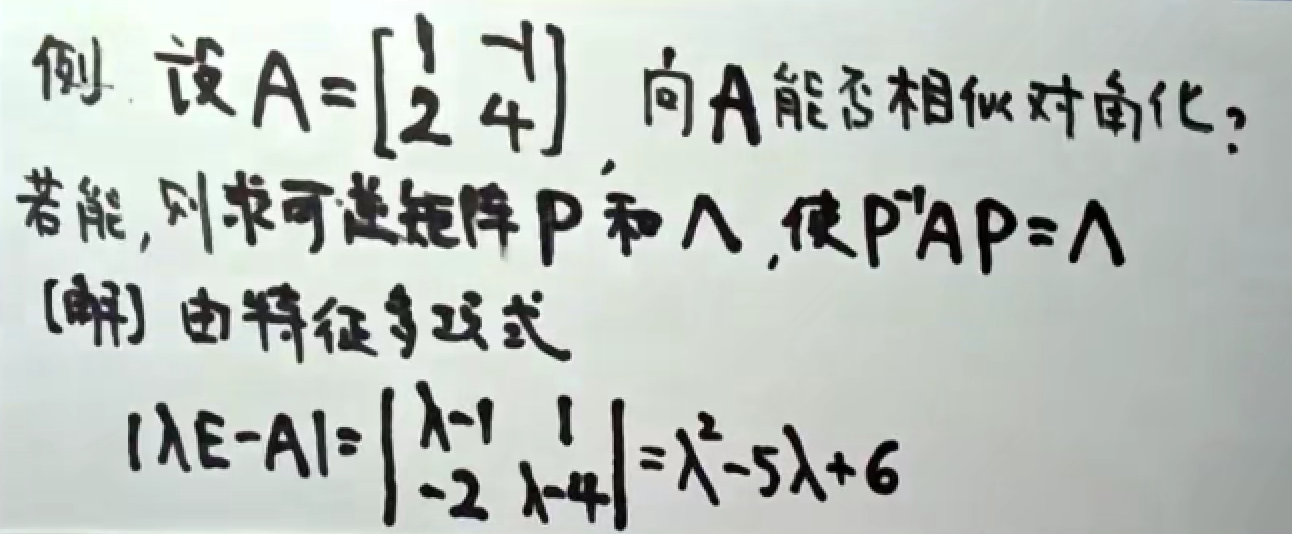 例. 设 A = [1 -1; 2 4] 问 A 能否相似对角化?
若能, 则求可逆矩阵 P 和 Λ, 使 P⁻¹AP = Λ
[解] 由特征多项式
|λE-A| = |λ-1 1; -2 λ-4| = λ²-5λ+6